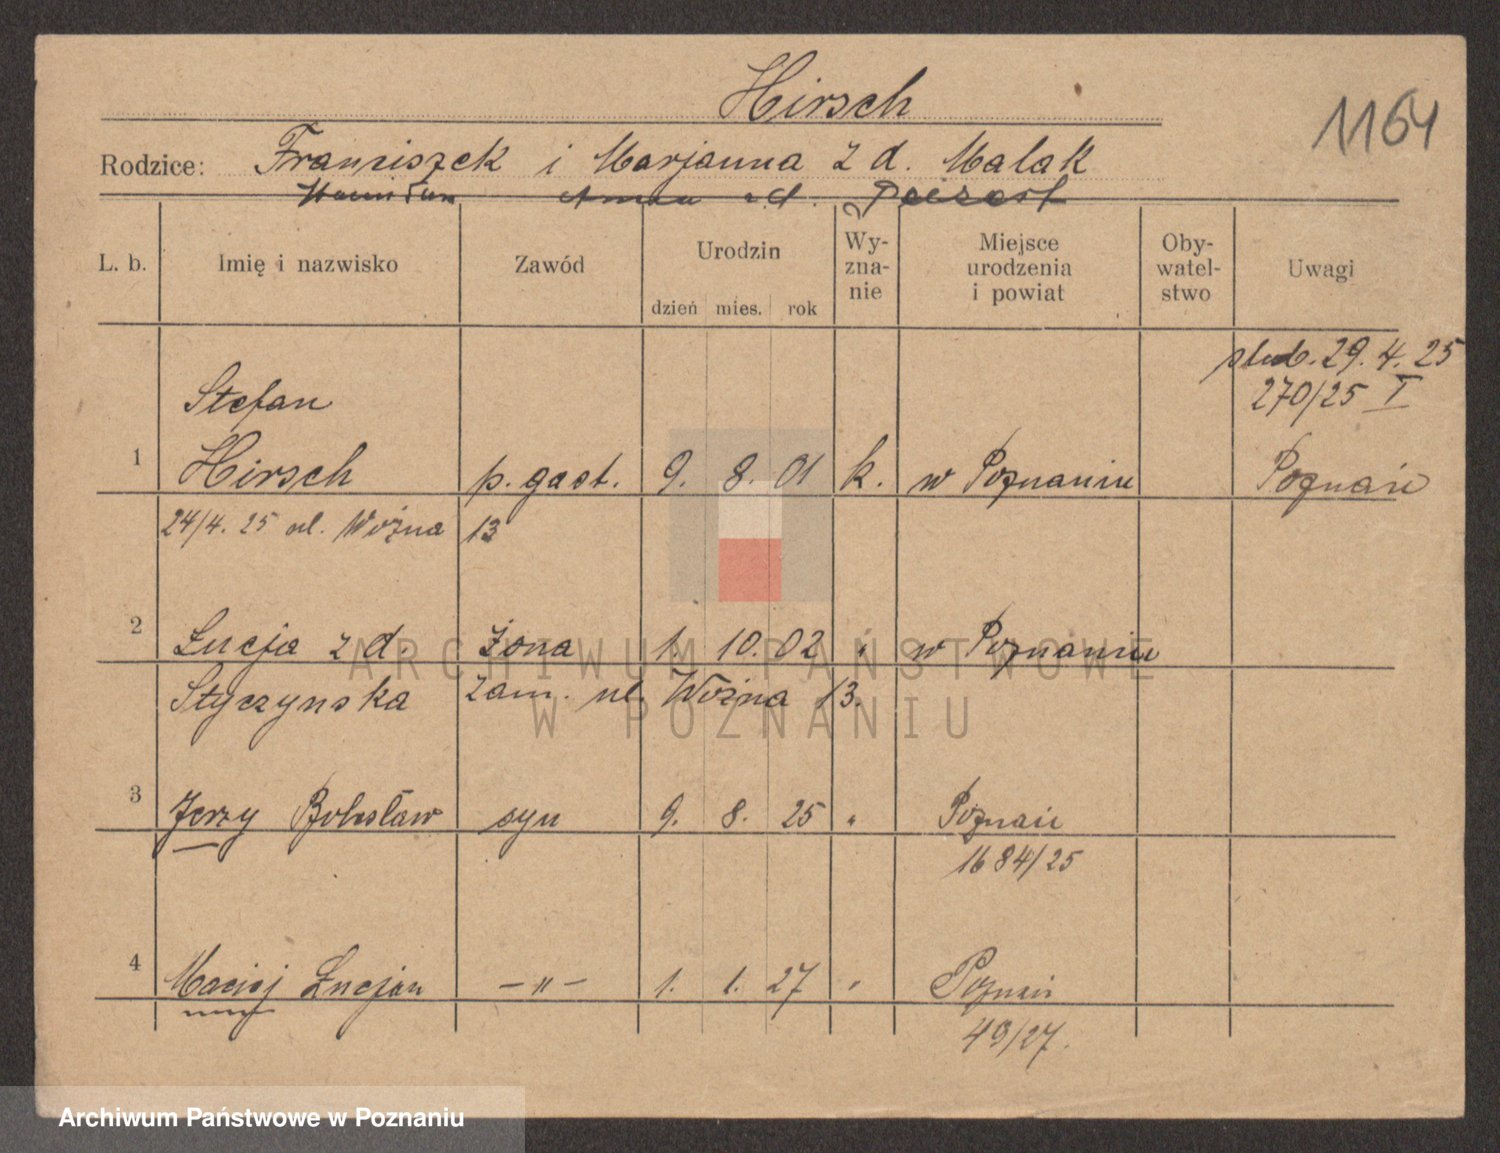 Hirsch
1164
Rodzice: Franciszek i Marjanna z d. Malak
Anna z d.
L. b. Imię i nazwisko Zawód Urodzin dzień mies. rok Wyznanie Miejsce urodzenia i powiat Obywatelstwo Uwagi
ślub. 29. 4. 25
Stefan 270/25 I
1 Hirsch p. gast. 9. 8. 01 k. w Poznaniu Poznań
24/4. 25 ul. Woźna 13
2 Łucja z d. żona 1. 10. 02 " w Poznaniu
Styczynska zam. ul. Woźna 13.
3 Jerzy Bolesław syn 9. 8. 25 " Poznań
1684/25
4 Maciej Łucjan — " — 1. 1. 27 " Poznań
49/27.
ARCHIWUM PAŃSTWOWE
W POZNANIU
Archiwum Państwowe w Poznaniu